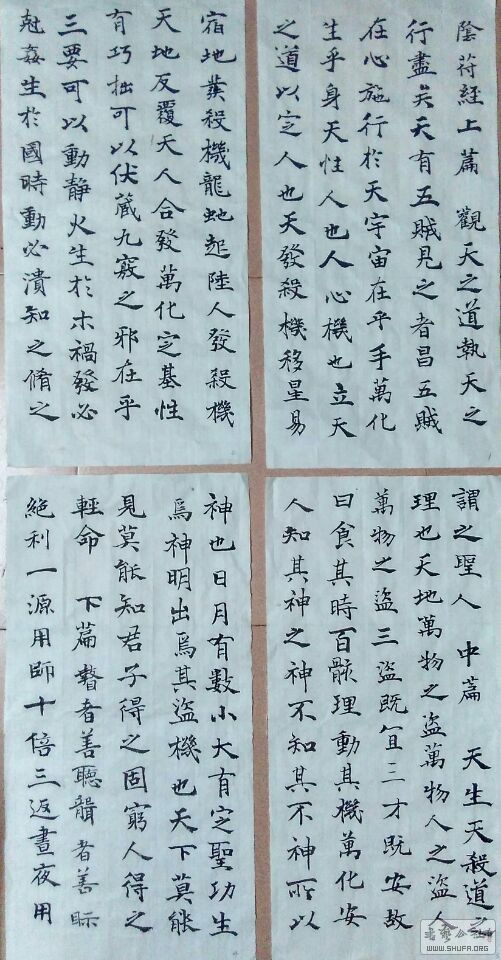 陰符經上篇 觀天之道執天之
行盡矣天有五賊見之者昌五賊
在心施行於天宇宙在乎手萬化
生乎身天性人也人心機也立天
之道以定人也天發殺機移星易
宿地發殺機龍虵起陸人發殺機
天地反覆天人合發萬化定基性
有巧拙可以伏藏九竅之邪在乎
三要可以動靜火生於木禍發必
尅姦生於國時動必潰知之脩之
謂之聖人 中篇 天生天殺道之
理也天地萬物之盜萬物人之盜人
萬物之盜三盜既宜三才既安故
曰食其時百骸理動其機萬化安
人知其神之神不知其不神所以
神也日月有數小大有定聖功生
焉神明出焉其盜機也天下莫能
見莫能知君子得之固窮人得之
輕命 下篇瞽者善聽聾者善眎
絕利一源用師十倍三返晝夜用
WWW.SHUFA.ORG